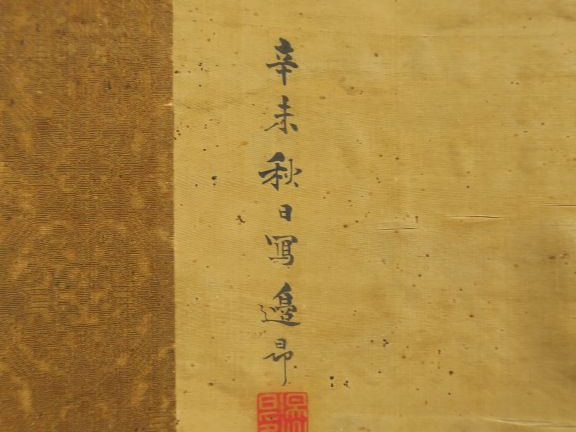 辛未秋日寫邊昂